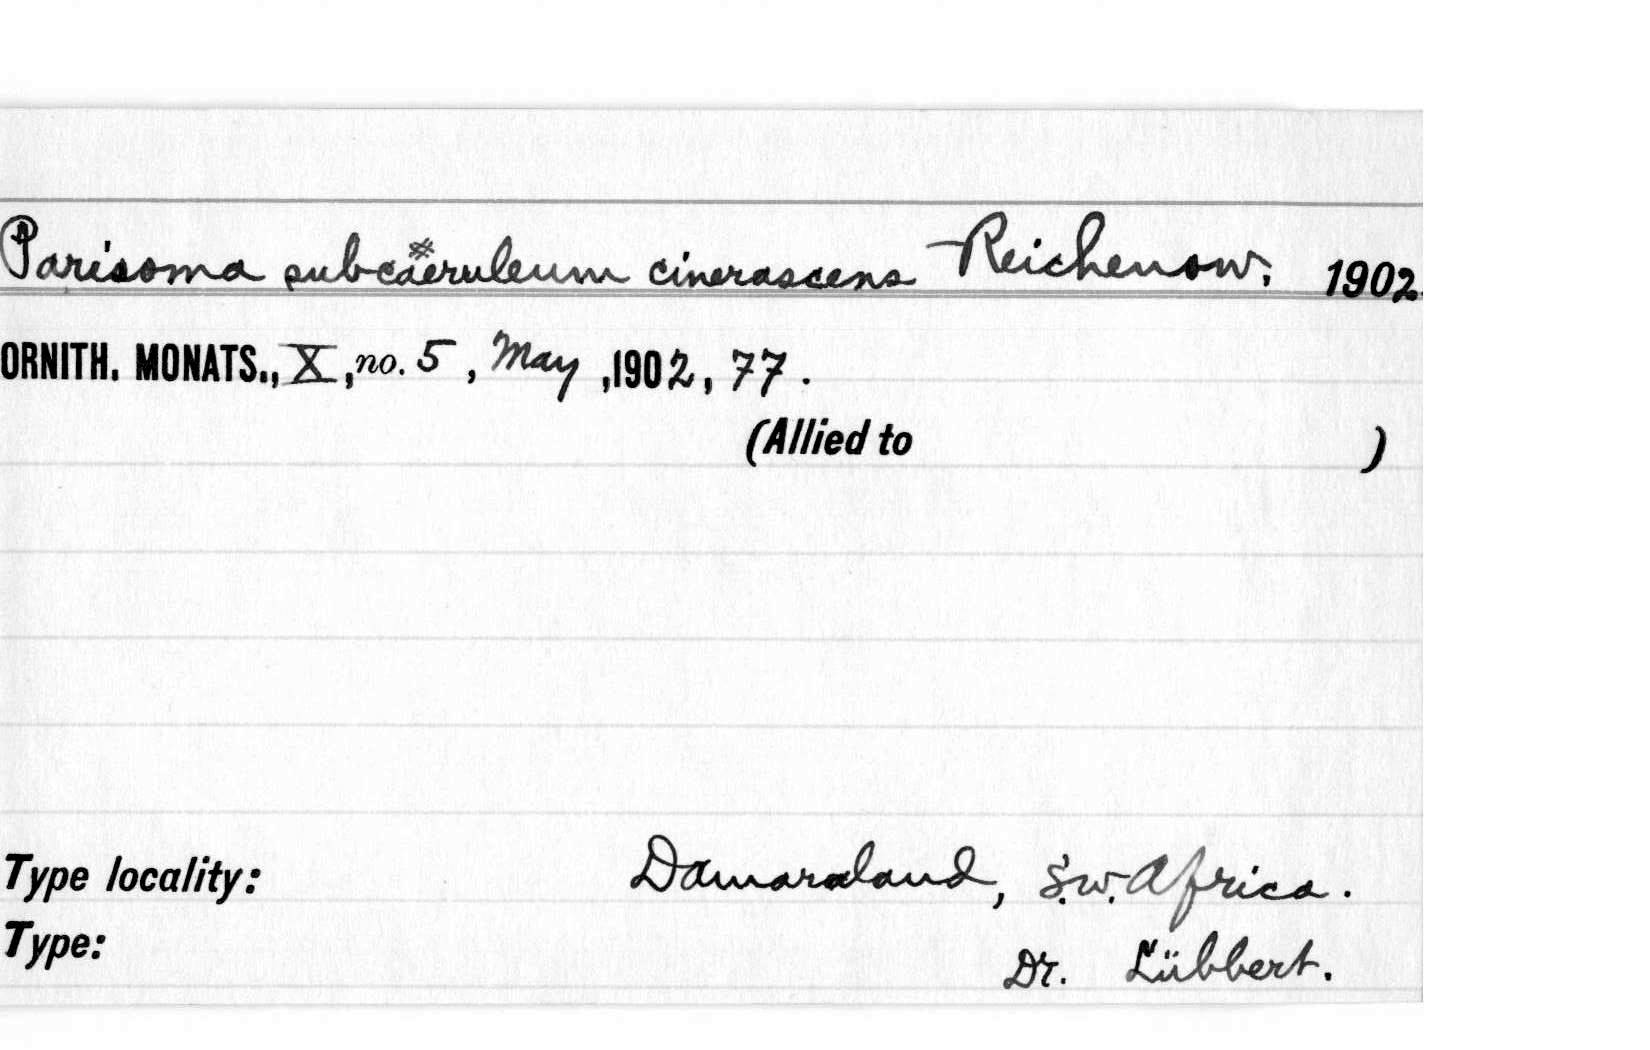 Parisoma subcaeruleum cinerascens Reichenow, 1902.
ORNITH. MONATS., X, no. 5, May, 1902, 77.
(Allied to )
Type locality: Damaraland, S.W. Africa.
Type: Dr. Lübbert.